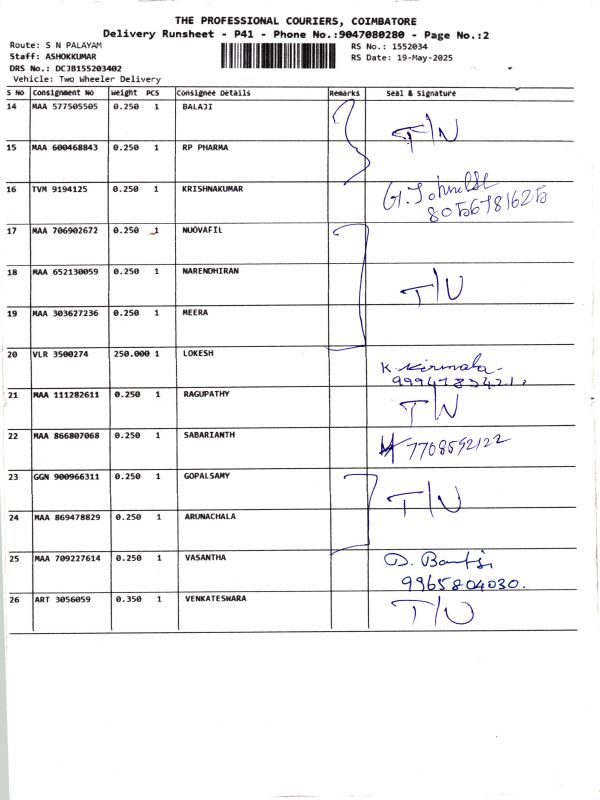 THE PROFESSIONAL COURIERS, COIMBATORE
Delivery Runsheet - P41 - Phone No.:9047080280 - Page No.:2
Route: S N PALAYAM RS No.: 1552034
Staff: ASHOKKUMAR RS Date: 19-May-2025
DRS No.: DCJB155203402
Vehicle: Two Wheeler Delivery
S No Consignment No Weight PCS Consignee Details Remarks Seal & Signature
14 MAA 577505505 0.250 1 BALAJI
T/N
15 MAA 600468843 0.250 1 RP PHARMA
16 TVM 9194125 0.250 1 KRISHNAKUMAR
17 MAA 706902672 0.250 1 NUOVAFIL
18 MAA 652130059 0.250 1 NARENDHIRAN
T/N
19 MAA 303627236 0.250 1 MEERA
20 VLR 3500274 250.000 1 LOKESH
K. Nirmala
21 MAA 111282611 0.250 1 RAGUPATHY
T/N
22 MAA 866807068 0.250 1 SABARIANTH
7708592122
23 GGN 900966311 0.250 1 GOPALSAMY
T/N
24 MAA 869478829 0.250 1 ARUNACHALA
25 MAA 709227614 0.250 1 VASANTHA
9965804030.
26 ART 3056059 0.350 1 VENKATESWARA
T/N